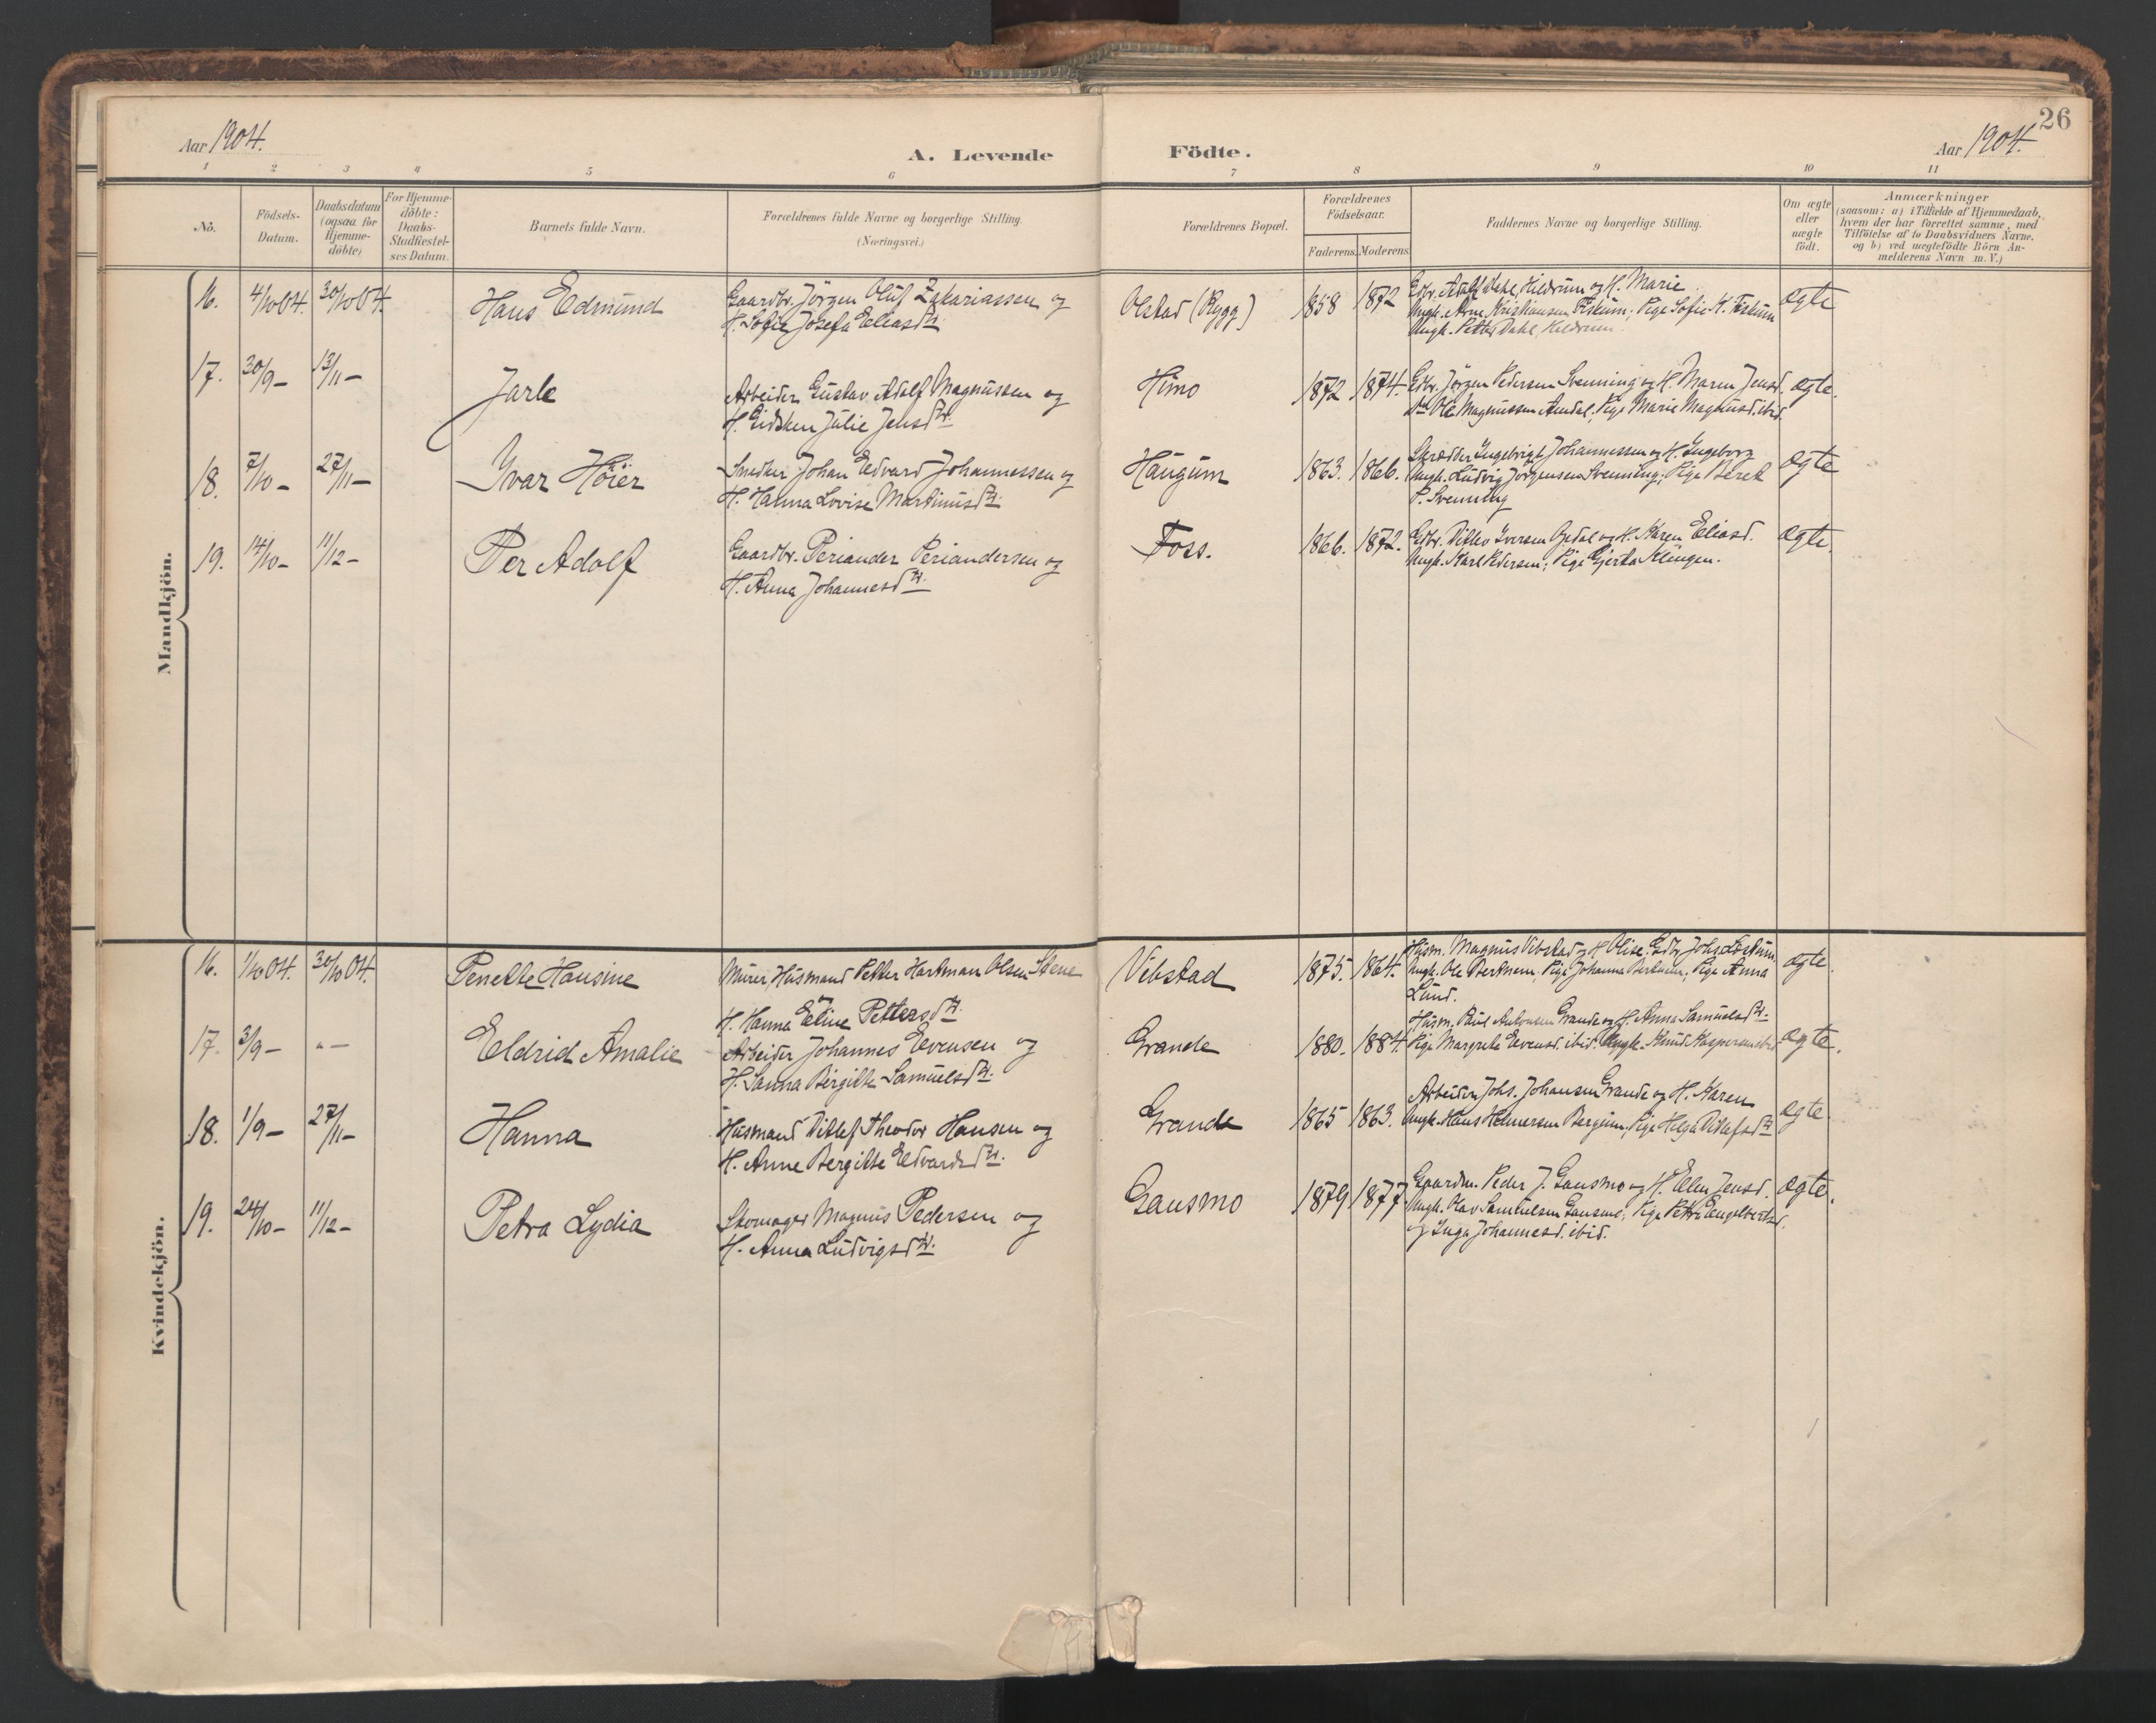 26
Aar 1904.
A. Levende Födte.
Aar 1904.
1 2 3 4 5 6 7 8 9 10 11
No.
Födsels-
Datum.
Daabsdatum
(ogsaa for
Hjemme-
döbte)
For Hjemme-
döbte:
Daabs-
Stadfæstel-
ses Datum.
Barnets fulde Navn.
Forældrenes fulde Navne og borgerlige Stilling.
(Næringsvei.)
Forældrenes Bopæl.
Forældrenes
Födselsaar.
Faderens. Moderens.
Faddernes Navne og borgerlige Stilling.
Om ægte
eller
uægte
födt.
Anmærkninger
(saasom: a) i Tilfælde af Hjemmedaab,
hvem der har forrettet samme, med
Tilföielse af to Daabsvidners Navne,
og b) ved uægtefödte Börn An-
melderens Navn m. V.)
Mandkjön.
16. 4/10 04. 30/10 04. Hans Edmund
Gaardbr. Jörgen Oluf Zakariassen og
H. Sofie Josefa Eliasdtr.
Olstad (Rygg) 1858 1872
Gdbr. Adolf Dahl, Hildrum og H. Marie.
Ungk. Arne Kristiansen Fiskum; Pige Sofie K. Fiskum
Ungk. Petter Dahl, Hildrum.
ægte
17. 30/9 – 13/11 – Jarle
Arbeider Gustav Adolf Magnussen og
H. Gidsken Julie Jensdtr.
Himo 1872 1874.
Gdbr. Jörgen Pedersen Svenning og H. Maren Jensd.
Ole Magnussen Amdal, Pige Marie Magnusd. ibid.
ægte.
18. 7/10 – 27/11 – Ivar Höier
Snedker Johan Edvard Johannessen og
H. Hanna Lovise Martinusdtr.
Haugum 1863. 1866.
Skrædder Ingebrigt Johannessen og H. Ingeborg
Ungk. Ludvig Jörgensen Svenning; Pige Beret
P. Svenning
ægte
19. 14/10 – 11/12 – Per Adolf
Gaardbr. Periander Periandersen og
H. Anna Johannesdtr.
Foss. 1866. 1872.
Gdbr. Ditlev Iversen og H. Karen Eliasd.
Ungk. Karl Pedersen; Pige Gjerta Klingen.
ægte.
Kvindekjön.
16. 1/10 04. 30/10 04. Penette Hansine
Murer, Husmand Petter Hartman Olsen Stene
H. Hanna Eline Pettersdtr.
Vibstad 1875. 1864.
Husm. Magnus Vibstad og H. Olise. Gdbr. Johs.
Ungk. Ole Bertnem; Pige Johanna Bertnem; Pige Anna
Lund.
ægte.
17. 3/9 – " – Eldrid Amalie
Arbeider Johannes Evensen og
H. Sanna Birgitte Samuelsdtr.
Grande 1880. 1884.
Husm. Paul Antonsen Grande og H. Anna Samuelsdtr.
Pige Margrete Evensd. ibid. Ungk. Knud Kaspersen ibid
ægte.
18. 1/9 – 27/11 – Hanna
Husmand Ditlef Theodor Hansen og
H. Anne Bergitte Edvardsdtr.
Grande 1865 1863.
Arbeider Johs. Johansen Grande og H. Karen
Ungk. Hans Helmersen Bergum, Pige Helga Ditlefsdtr.
ægte.
19. 24/10 – 11/12 – Petra Lydia
Skomager Magnus Pedersen og
H. Anna Ludvigsdtr.
Gausmo 1879 1877.
Gaardm. Peder J. Gausmo og H. Elen Jensd.
Ungk. Olav Samuelsen Gausmo; Pige Petra Engelbertsd.
og Inga Johannesd. ibid.
ægte.